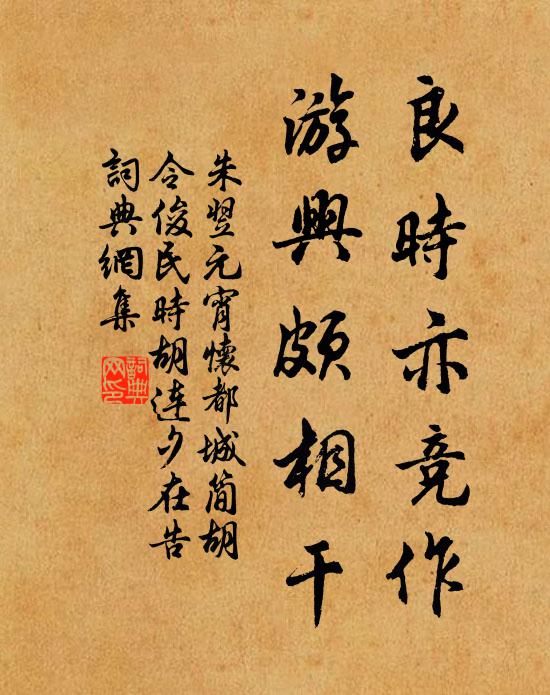 良時亦竞作
游興頗相干
朱翌元宵懷都城简胡
令俊民時胡連夕在告
詞典網集
詞典
网印